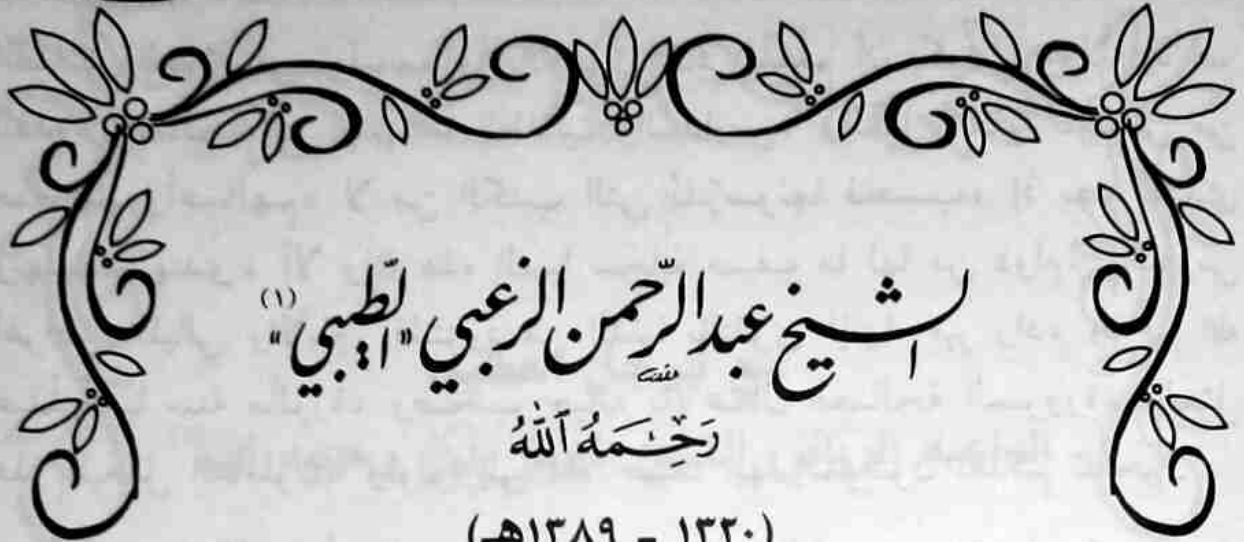 الشيخ عبد الرّحمن الزعبي "الطّيبي" (١)
رَحِمَهُ ٱللَّٰهُ
(١٣٢٠ - ١٣٨٩هـ)